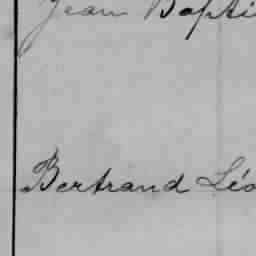 Jean Bapti
Bertrand Léo